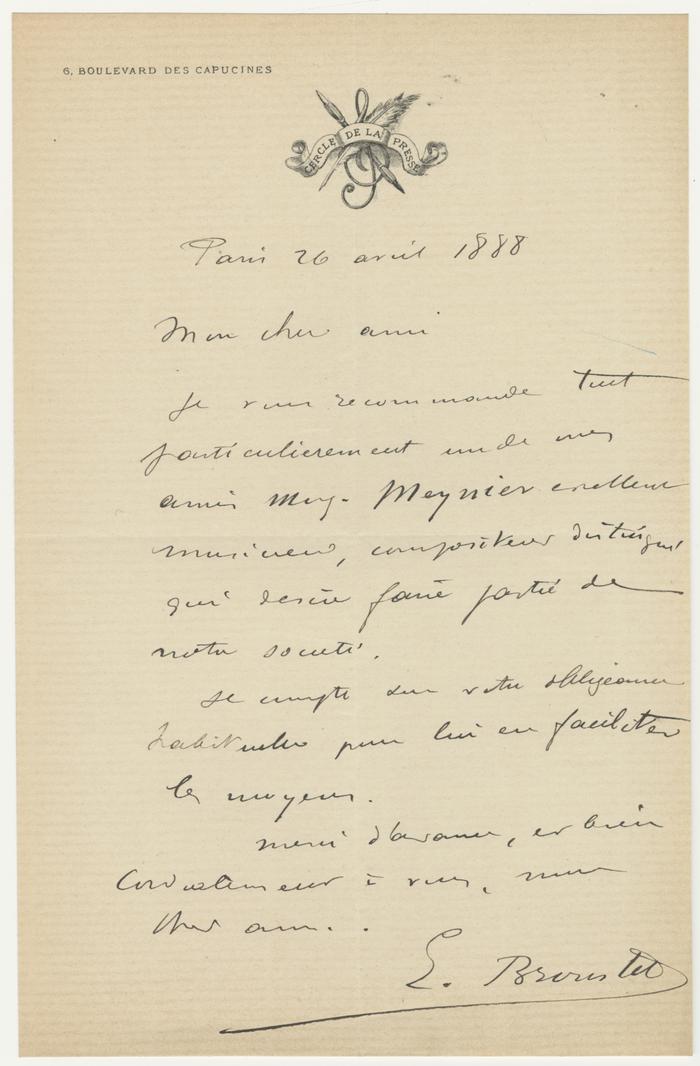 6, BOULEVARD DES CAPUCINES
CERCLE DE LA PRESSE
Paris 26 avril 1888
Mon cher ami
Je vous recommande tout
particulièrement un de mes
amis Meynier excellent
musicien, compositeur distingué
qui désire faire partie de
notre société.
Je compte sur votre obligeance
habituelle pour lui en faciliter
les moyens.
merci d'avance, et bien
Cordialement à vous, mon
cher ami.
E. Broustet